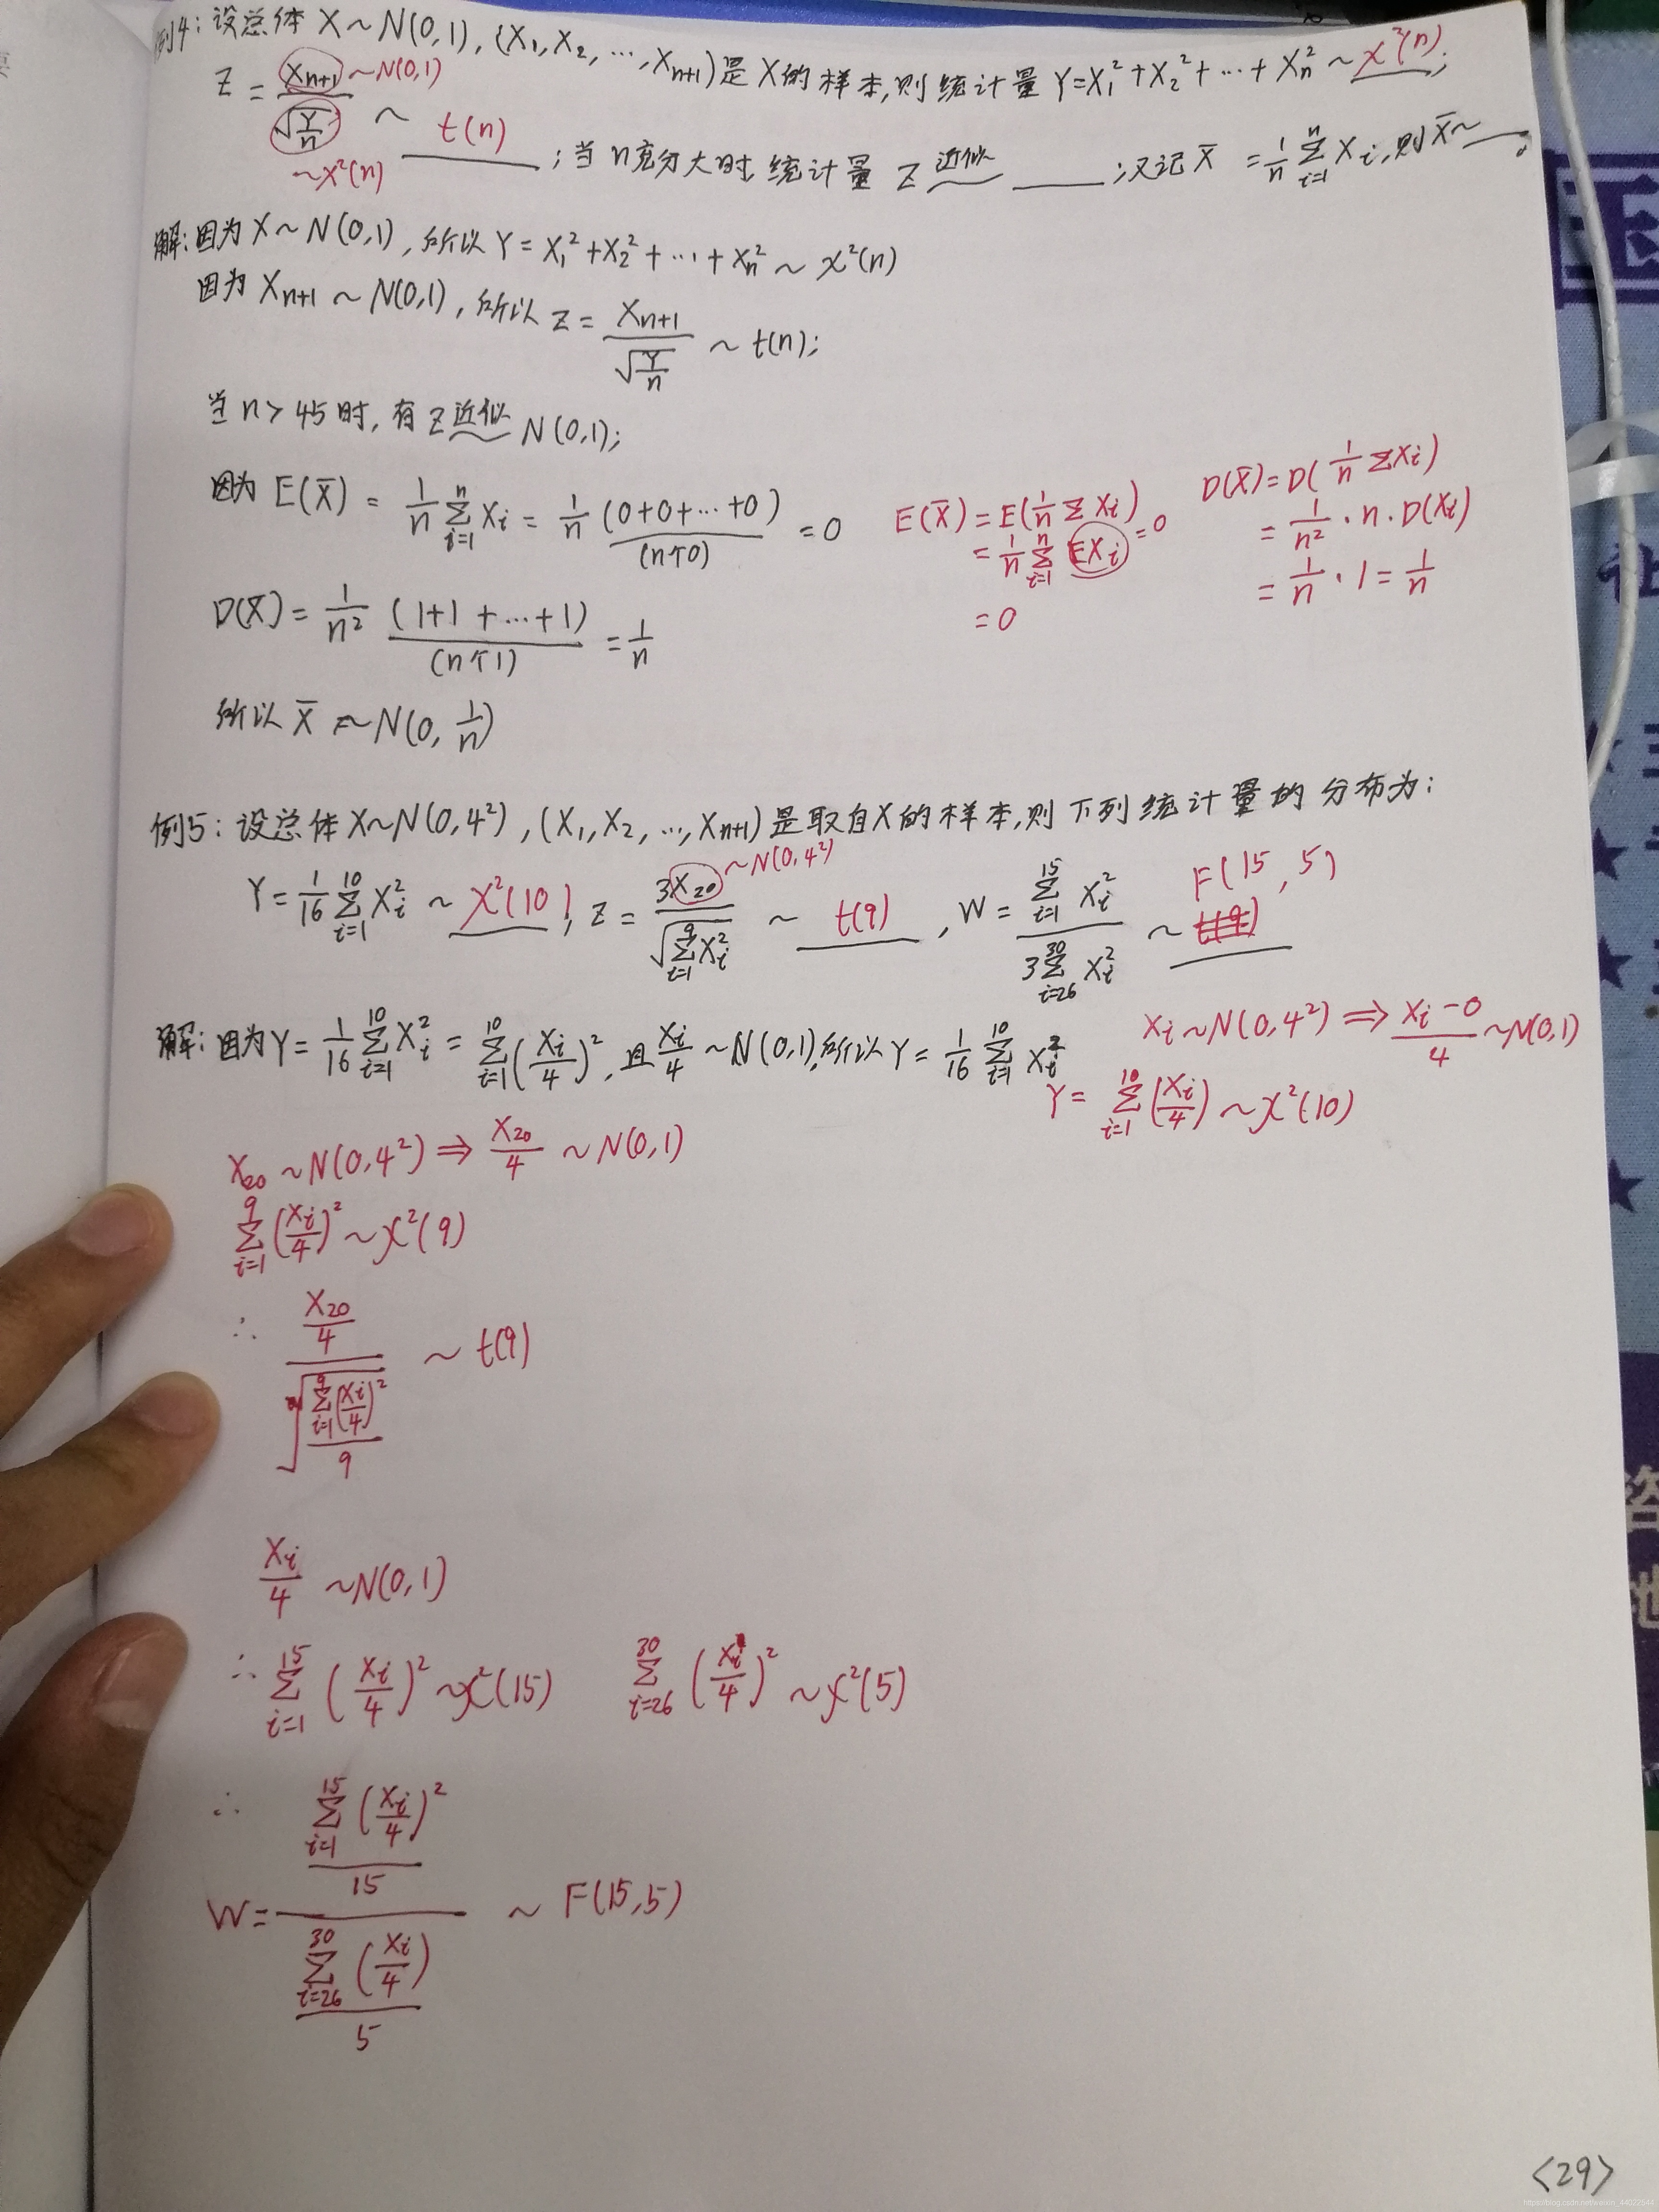 例4：设总体 X～N(0,1), (X₁,X₂,…,Xₙ₊₁)是X的样本,则统计量 Y=X₁²+X₂²+…+Xₙ²～χ²(n);
Z = Xₙ₊₁ / √(Y/n) ～ t(n) ;当n充分大时,统计量 Z 近似～ ____ ;又记X̄ = 1/n Σ(i=1,n) Xᵢ,则X̄～____。
～N(0,1)
～χ²(n)
解：因为X～N(0,1), 所以Y=X₁²+X₂²+…+Xₙ²～χ²(n)
因为Xₙ₊₁～N(0,1), 所以 Z= Xₙ₊₁ / √(Y/n) ～ t(n);
当n>45时, 有Z近似～N(0,1);
因为E(X̄) = 1/n Σ(i=1,n) Xᵢ = 1/n (0+0+…+0) (n个0) = 0
E(X̄) = E(1/n Σ Xᵢ)
= 1/n Σ(i=1,n) EXᵢ =0
= 0
D(X̄)=D(1/n ΣXᵢ)
= 1/n² · n · D(Xᵢ)
= 1/n · 1 = 1/n
D(X̄) = 1/n² (1+1+…+1) (n个1) = 1/n
所以 X̄ ～N(0, 1/n)
例5：设总体X～N(0,4²), (X₁,X₂,…,Xₙ₊₁)是取自X的样本,则下列统计量的分布为：
Y= 1/16 Σ(i=1,10) Xᵢ² ～ χ²(10), Z= 3X₂₀ / √(Σ(i=1,9) Xᵢ²) ～ t(9), W= Σ(i=1,15) Xᵢ² / 3Σ(i=26,30) Xᵢ² ～ F(15,5)
～N(0,4²)
解：因为Y= 1/16 Σ(i=1,10) Xᵢ² = Σ(i=1,10) (Xᵢ/4)², 且 Xᵢ/4 ～N(0,1),所以Y= 1/16 Σ(i=1,10) Xᵢ²
Xᵢ～N(0,4²) ⇒ (Xᵢ-0)/4 ～N(0,1)
Y= Σ(i=1,10) (Xᵢ/4) ～χ²(10)
X₂₀～N(0,4²) ⇒ X₂₀/4 ～N(0,1)
Σ(i=1,9) (Xᵢ/4)² ～χ²(9)
∴ (X₂₀/4) / √(Σ(i=1,9)(Xᵢ/4)² / 9) ～ t(9)
Xᵢ/4 ～N(0,1)
∴ Σ(i=1,15) (Xᵢ/4)² ～χ²(15) Σ(i=26,30) (Xᵢ/4)² ～χ²(5)
∴ W= (Σ(i=1,15) (Xᵢ/4)² / 15) / (Σ(i=26,30) (Xᵢ/4) / 5) ～ F(15,5)
<29>